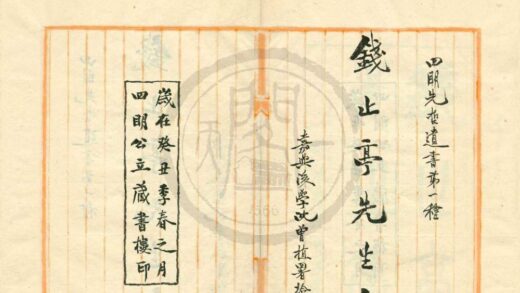 四明先哲遺書第一種
錢止亭先生
嘉興後學沈曾植署
歲在癸丑季春之月
四明公立藏書樓印
1566